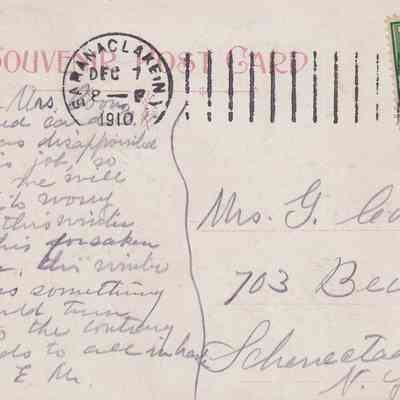 SOUVENIR POST CARD
SARANAC LAKE, N.Y.
DEC 7
8 — P
1910
Mrs.
ed card
as disappointed
is job, so
he will
to worry
this winter
his forsaken
winter
s something
uld turn
o the contrary
ds to all in
E M.
Mrs. G.
703 Bee
Schenectad
N. Y.